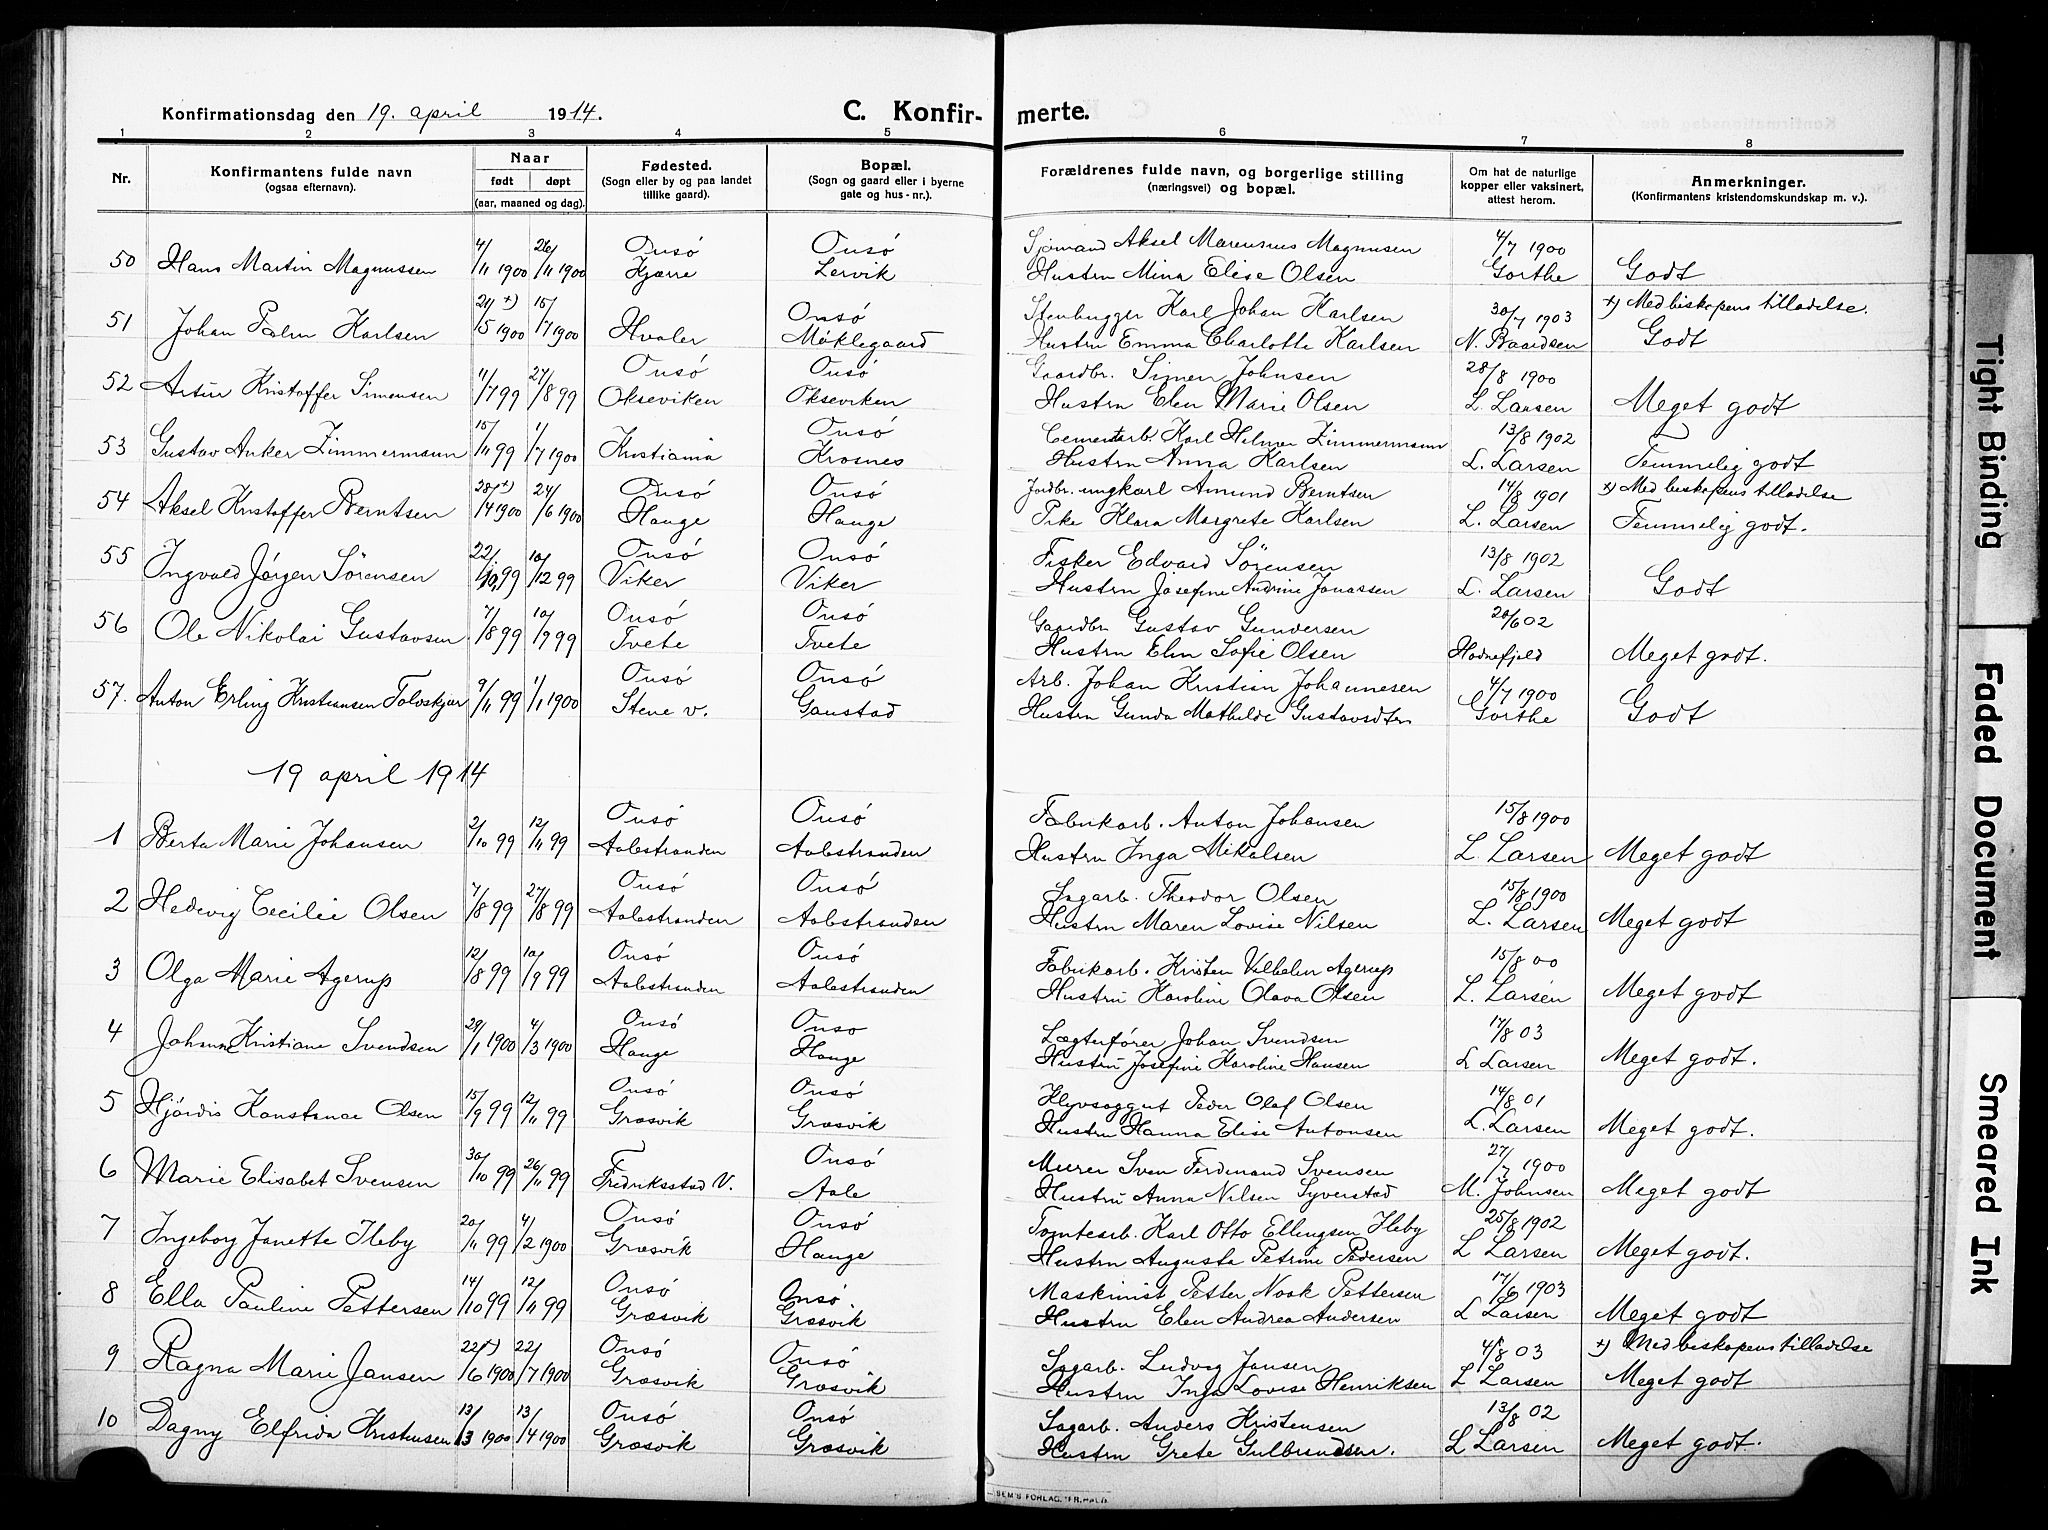 Konfirmationsdag den 19. april 1914. C. Konfir- merte.
1 2 3 4 5 6 7 8
Nr. Konfirmantens fulde navn (ogsaa efternavn). Naar født døpt (aar, maaned og dag). Fødested. (Sogn eller by og paa landet tillike gaard). Bopæl. (Sogn og gaard eller i byerne gate og hus-nr.). Forældrenes fulde navn, og borgerlige stilling (næringsvei) og bopæl. Om hat de naturlige kopper eller vaksinert, attest herom. Anmerkninger. (Konfirmantens kristendomskundskap m. v.).
4/ 26/ Onsö Onsö Sjömand Aksel Marensius Magnusen 4/7 1900
50 Hans Martin Magnussen 11 1900 11 1900 Kjære Lervik Hustru Mina Elise Olsen Gorthe Godt
21/ +) 15/ Onsö Stenhugger Karl Johan Karlsen 30/7 1903 +) Med biskopens tilladelse.
51 Johan Palm Karlsen 5 1900 7 1900 Hvaler Møklegaard Hustru Emma Charlotte Karlsen N. Baardsen Godt
Onsö Onsö Gaardbr. Simen Johnsen 28/8 1900
52 Artur Kristoffer Simensen 11/7 99 27/8 99 Okseviken Okseviken Hustru Elen Marie Olsen L. Larsen Meget godt
Onsö Cementarb. Karl Hilmer Zimmermann 13/8 1902
53 Gustav Anker Zimmermann 15/11 99 1/7 1900 Kristiania Krosnes Hustru Anna Karlsen L. Larsen Temmelig godt
28/ +) 24/ Onsö Onsö Jordbr. ungkarl Amund Berntsen 14/8 1901 +) Med biskopens tilladelse
54 Aksel Kristoffer Berntsen 4 1900 6 1900 Hauge Hauge Pike Klara Margrete Karlsen L. Larsen Temmelig godt.
Onsö Onsö Fisker Edvard Sörensen 13/8 1902
55 Ingvald Jörgen Sörensen 22/10 99 10/12 99 Viker Viker Hustru Josefine Andrine Jonassen L. Larsen Godt
Onsö Onsö Gaardbr Gustav Gundersen 20/6 02
56 Ole Nikolai Gustavsen 7/8 99 10/9 99 Tvete Tvete Hustru Elin Sofie Olsen Hodnefjeld Meget godt.
Onsö Onsö Arb. Johan Kristian Johannesen 4/7 1900
57. Anton Erling Kristiansen Tolvskjær 9/11 99 1/1 1900 Stene v. Gaustad Hustru Gunda Mathilde Gustavsdtr Gorthe Godt
19 april 1914
Onsö Onsö Fabrikarb. Anton Johansen 15/8 1900
1 Berta Marie Johansen 2/10 99 12/11 99 Aalestranden Aalestranden Hustru Inga Mikalsen L. Larsen Meget godt
Onsö Onsö Sagarb. Theodor Olsen 15/8 1900
2 Hedevig Cecilie Olsen 7/8 99 27/8 99 Aalestranden Aalestranden Hustru Maren Lovise Nilsen L. Larsen Meget godt
Onsö Onsö Fabrikarb. Kristen Vilhelm Agerup 15/8 00
3 Olga Marie Agerup 12/8 99 10/9 99 Aalestranden Aalestranden Hustru Karoline Olava Olsen L. Larsen Meget godt
Onsö Onso Lægterförer Johan Svendsen 17/8 03
4 Johanne Kristiane Svendsen 29/1 1900 4/3 1900 Hauge Hauge Hustru Josefine Karoline Hansen L Larsen Meget godt.
Onsö Onsö Klyvsaggut Peder Olaf Olsen 14/8 01
5 Hjördis Konstanse Olsen 15/9 99 12/11 99 Græsvik Græsvik Hustru Hanna Elise Antonsen L. Larsen Meget godt.
Onsö Murer Sven Ferdinand Svensen 27/7 1900
6 Marie Elisabet Svensen 30/10 99 26/11 99 Fredriksstad V. Aale Hustru Anna Nilsen Syverstad M. Johnsen Meget godt
Onsö Onsö Tomtearb. Karl Otto Ellingsen Ileby 25/8 1902
7 Ingeborg Janette Ileby 20/11 99 4/2 1900 Græsvik Hauge Hustru Augusta Petrine Pedersen L Larsen Meget godt.
Onsö Onsö. Maskinist Petter Noak Pettersen 17/6 1903
8 Ella Pauline Pettersen 14/10 99 12/11 99 Græsvik Græsvik Hustru Elen Andrea Andersen L Larsen Meget godt
22/ +) 22/ Onsö Onsö Sagarb. Ludvig Jansen 4/8 03 +) Med biskopens tilladelse
9 Ragna Marie Jansen 6 1900 7 1900 Græsvik Græsvik Hustru Inga Lovise Henriksen L Larsen Meget godt
Onsö Onsö Sagarb. Anders Kristensen 13/8 02
10 Dagny Elfrida Kristensen 13/3 1900 13/4 1900 Græsvik Græsvik Hustru Grete Gulbrandsen. L Larsen Meget godt.
SEM'S FORLAG, FR.HALD.
Tight Binding
Faded Document
Smeared Ink